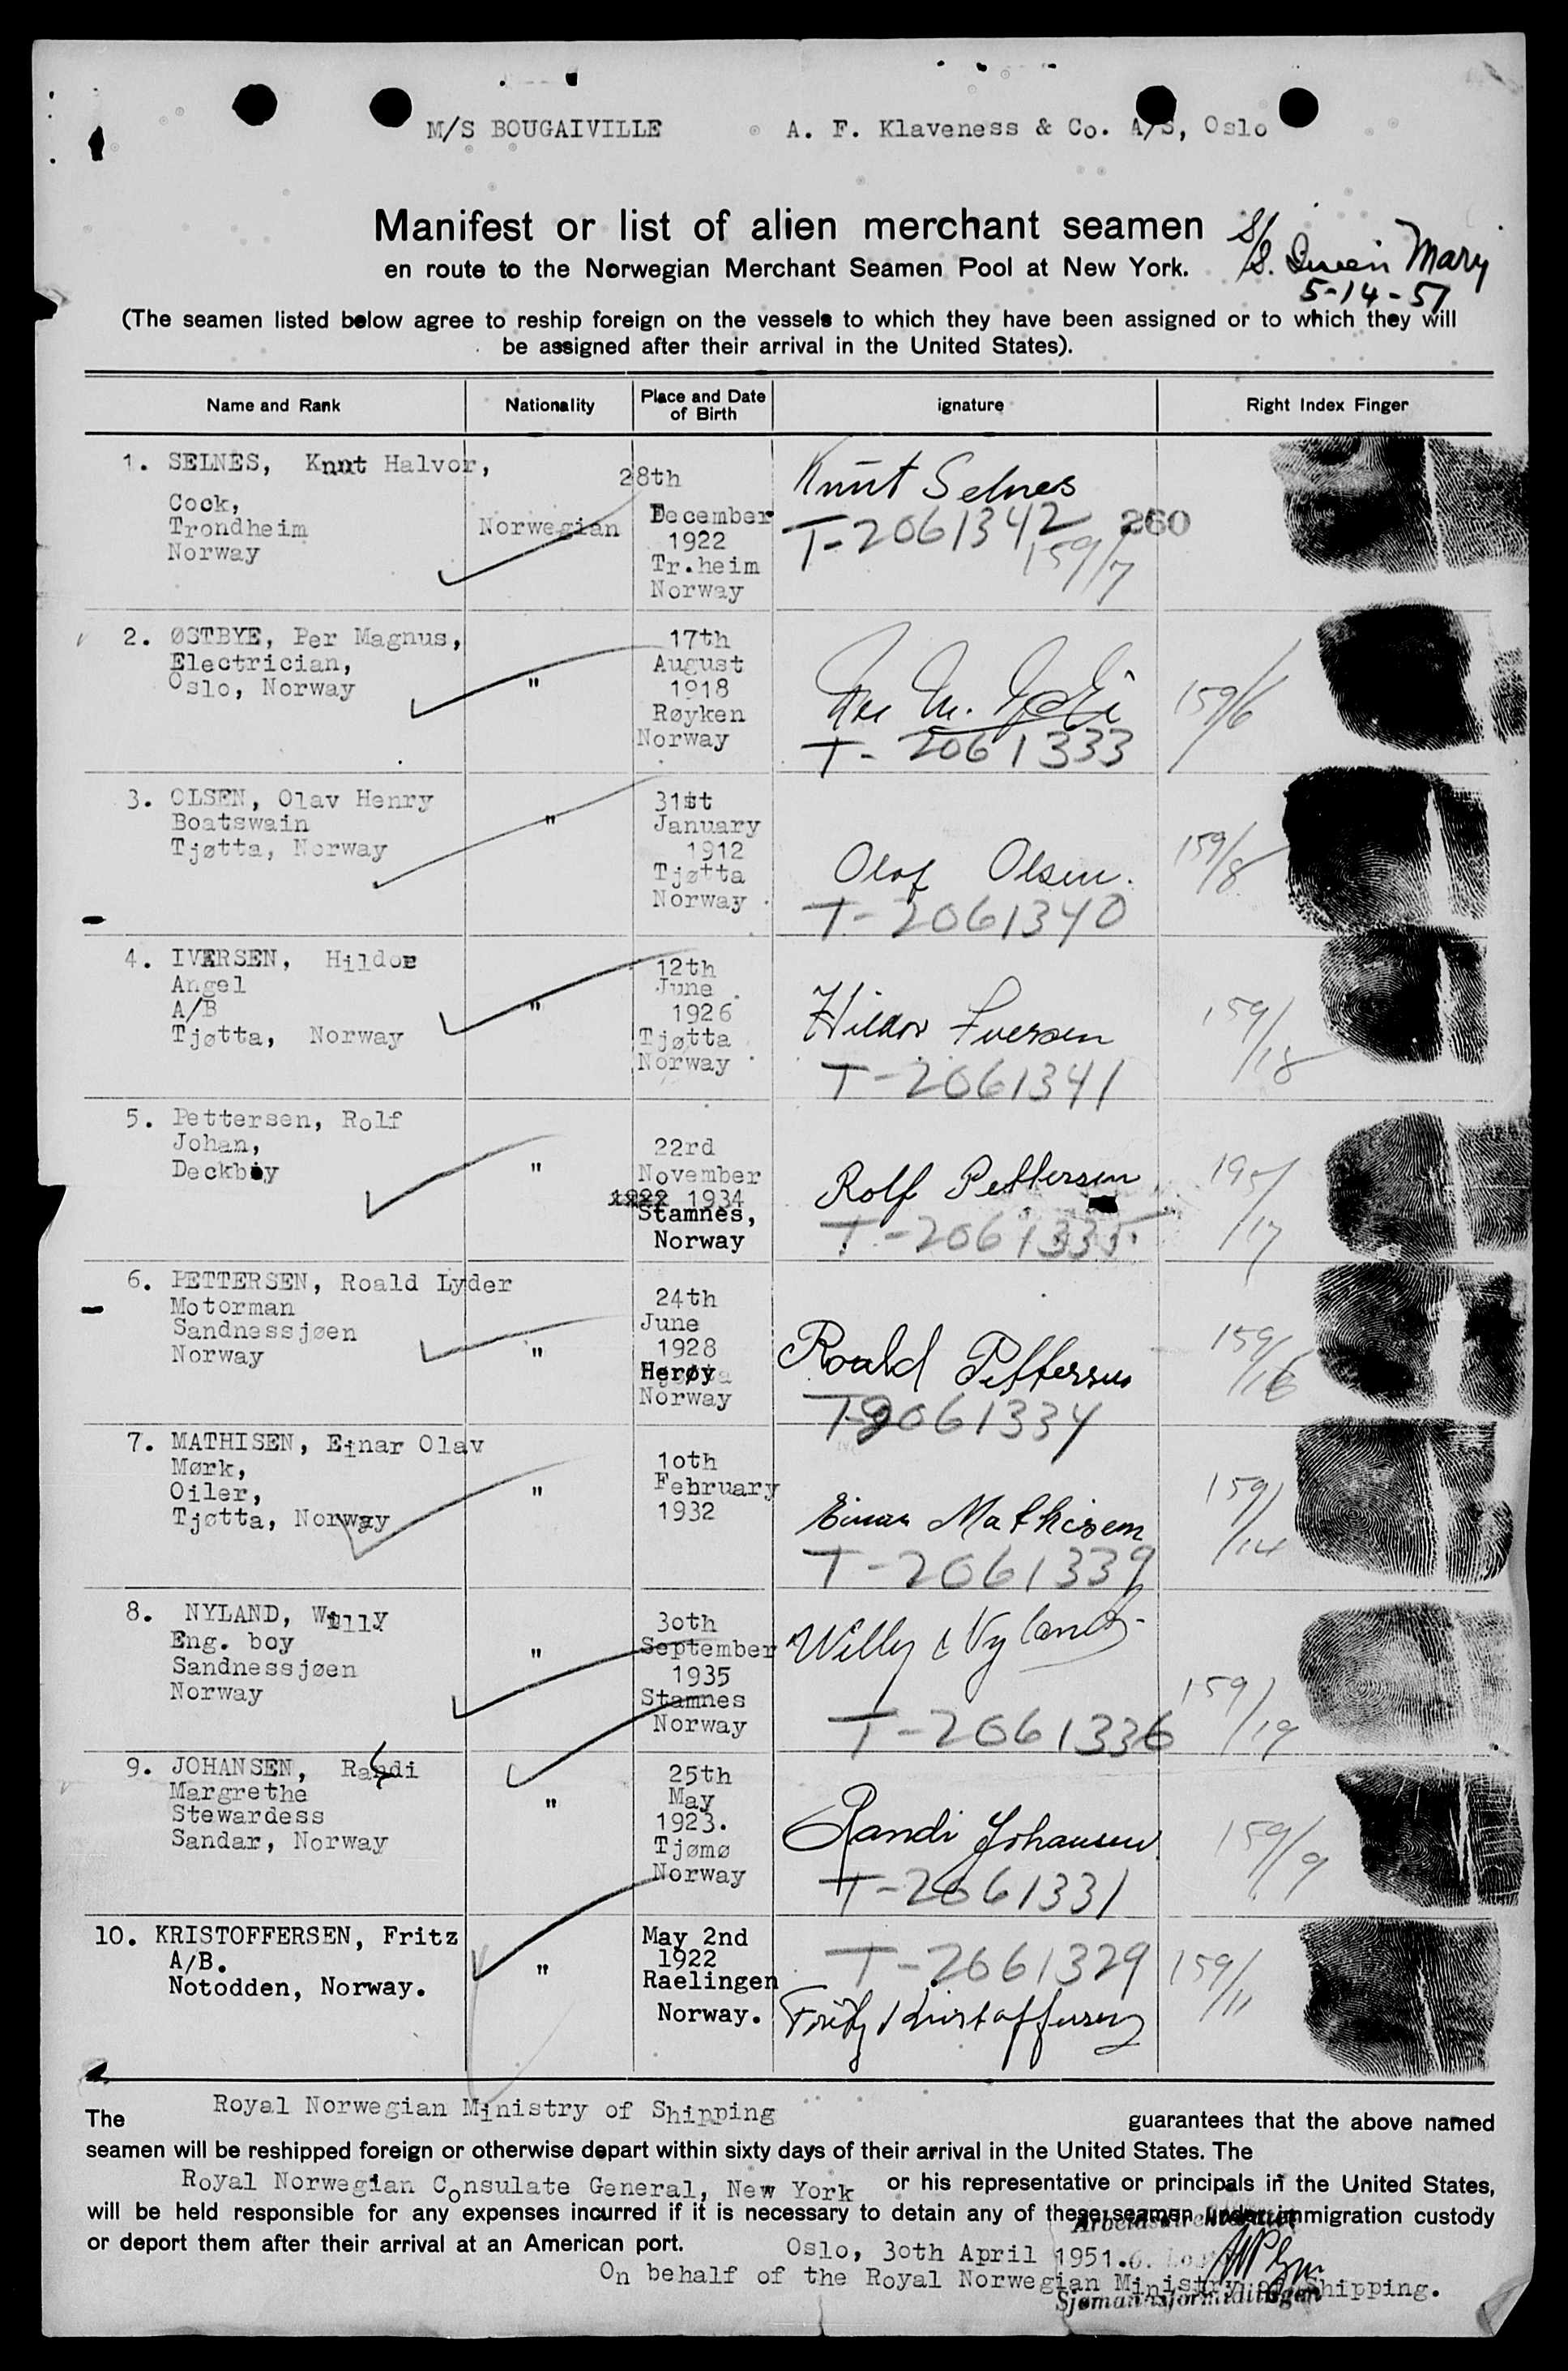 M/S BOUGAIVILLE A. F. Klaveness & Co. A/S, Oslo
Manifest or list of alien merchant seamen
S/S. Queen Mary
en route to the Norwegian Merchant Seamen Pool at New York.
5-14-51
(The seamen listed below agree to reship foreign on the vessels to which they have been assigned or to which they will
be assigned after their arrival in the United States).
Name and Rank Nationality Place and Date of Birth ignature Right Index Finger
1. SELNES, Knut Halvor,
Cock,
Trondheim
Norway
Norwegian
28th
December
1922
Tr.heim
Norway
Knut Selnes
T-2061342 260
159/7
2. ØSTBYE, Per Magnus,
Electrician,
Oslo, Norway
"
17th
August
1918
Røyken
Norway
T-2061333
159/6
3. OLSEN, Olav Henry
Boatswain
Tjøtta, Norway
"
31st
January
1912
Tjøtta
Norway
Olaf Olsen.
T-2061340
159/8
4. IVERSEN, Hildor
Angel
A/B
Tjøtta, Norway
"
12th
June
1926
Tjøtta
Norway
Hildor Iversen
T-2061341
159/18
5. Pettersen, Rolf
Johan,
Deckboy
"
22rd
November
1922 1934
Stamnes,
Norway
Rolf Pettersen
T-2061335
195/17
6. PETTERSEN, Roald Lyder
Motorman
Sandnessjøen
Norway
"
24th
June
1928
Herøy
Norway
Roald Pettersen
T-2061334
159/16
7. MATHISEN, Einar Olav
Mørk,
Oiler,
Tjøtta, Norway
"
10th
February
1932
Einar Mathisen
T-2061339
159/14
8. NYLAND, Willy
Eng. boy
Sandnessjøen
Norway
"
30th
September
1935
Stamnes
Norway
Willy Nyland
T-2061336
159/19
9. JOHANSEN, Randi
Margrethe
Stewardess
Sandar, Norway
"
25th
May
1923.
Tjømø
Norway
Randi Johansen
T-2061331
159/9
10. KRISTOFFERSEN, Fritz
A/B.
Notodden, Norway.
"
May 2nd
1922
Raelingen
Norway.
T-2061329
Fritz Kristoffersen
159/11
The Royal Norwegian Ministry of Shipping guarantees that the above named
seamen will be reshipped foreign or otherwise depart within sixty days of their arrival in the United States. The
Royal Norwegian Consulate General, New York or his representative or principals in the United States,
will be held responsible for any expenses incurred if it is necessary to detain any of these seamen under immigration custody
or deport them after their arrival at an American port.
Oslo, 30th April 1951.
On behalf of the Royal Norwegian Ministry of Shipping.